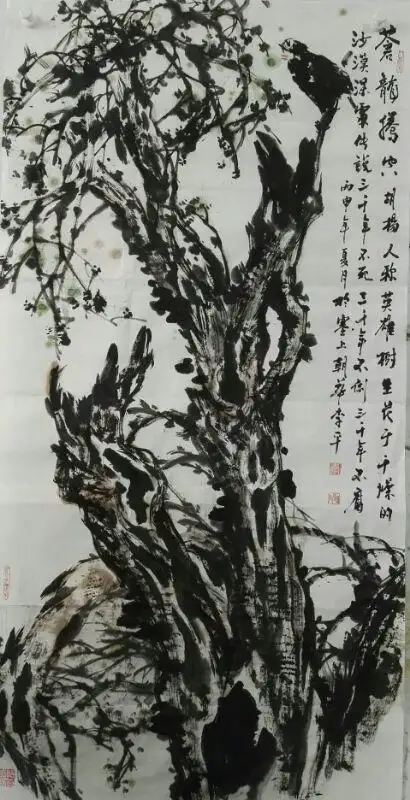 蒼龍騰空胡楊人称英雄樹生長于干燥的
沙漠深處传說三千年不死三千年不倒三千年不腐
丙申年夏月於塞上朝華李平